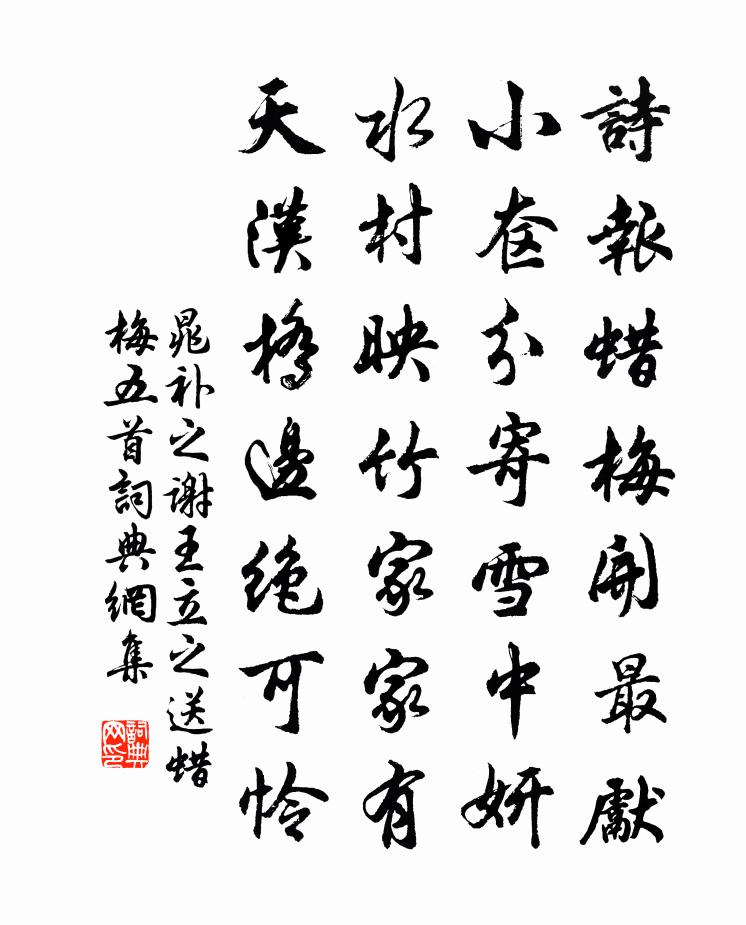 詩報蜡梅開最獻
小奁分寄雪中妍
水村映竹家家有
天漢橋邊絶可怜
晁补之謝王立之送蜡
梅五首詞典網集
詞典
网印